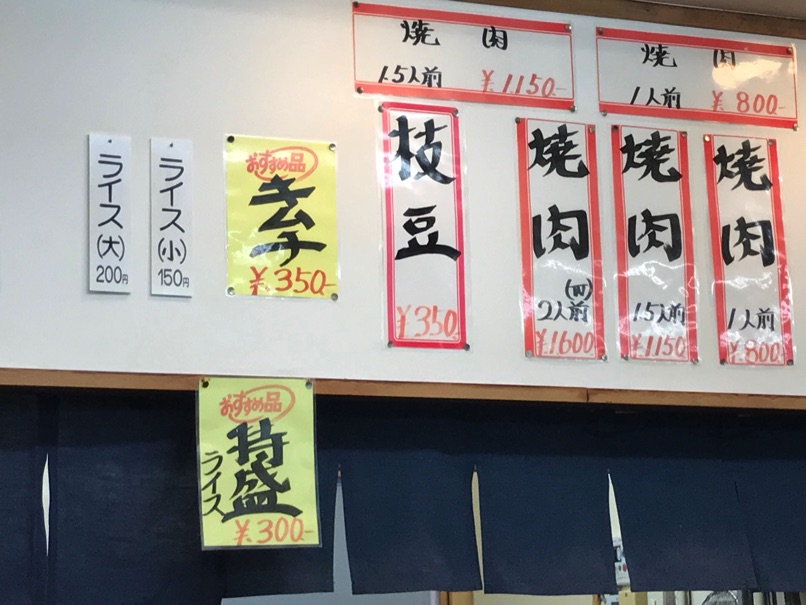 焼肉
1.5人前 ¥1150-
焼肉
1人前 ¥800-
焼肉
1人前
¥800-
焼肉
1.5人前
¥1150-
焼肉
(肉)
2人前
¥1600-
枝豆
¥350-
おすすめ品
キムチ
¥350-
ライス(小)
150円
ライス(大)
200円
おすすめ品
特盛
ライス
¥300-